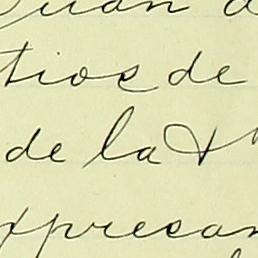 Juan d
tios de
de la
xpresan